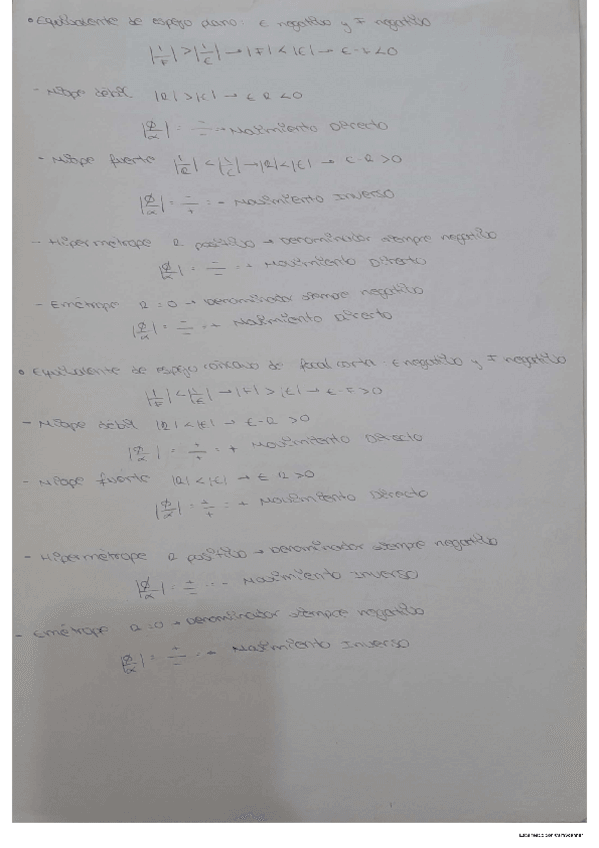 • Equivalente de espejo plano: E negativo y F negativo
|1/F| > |1/E| → |F| < |E| → E-F < 0
- Miope débil |R| > |E| → E R < 0
|Ø/α| = -/- → Movimiento Directo
- Miope fuerte |1/R| < |1/E| → |R| < |E| → E-R > 0
|Ø/α| = -/+ = - Movimiento Inverso
- Hipermétrope R positivo → Denominador siempre negativo
|Ø/α| = -/- = + Movimiento Directo
- Emétrope R = 0 → Denominador siempre negativo
|Ø/α| = -/- = + Movimiento Directo
• Equivalente de espejo cóncavo de focal corta: E negativo y F negativo
|1/F| < |1/E| → |F| > |E| → E-F > 0
- Miope débil |R| < |E| → E-R > 0
|Ø/α| = +/+ = + Movimiento Directo
- Miope fuerte |R| < |E| → E R > 0
|Ø/α| = +/+ = + Movimiento Directo
- Hipermétrope R positivo → Denominador siempre negativo
|Ø/α| = +/- = - Movimiento Inverso
- Emétrope R = 0 → Denominador siempre negativo
|Ø/α| = +/- = - Movimiento Inverso